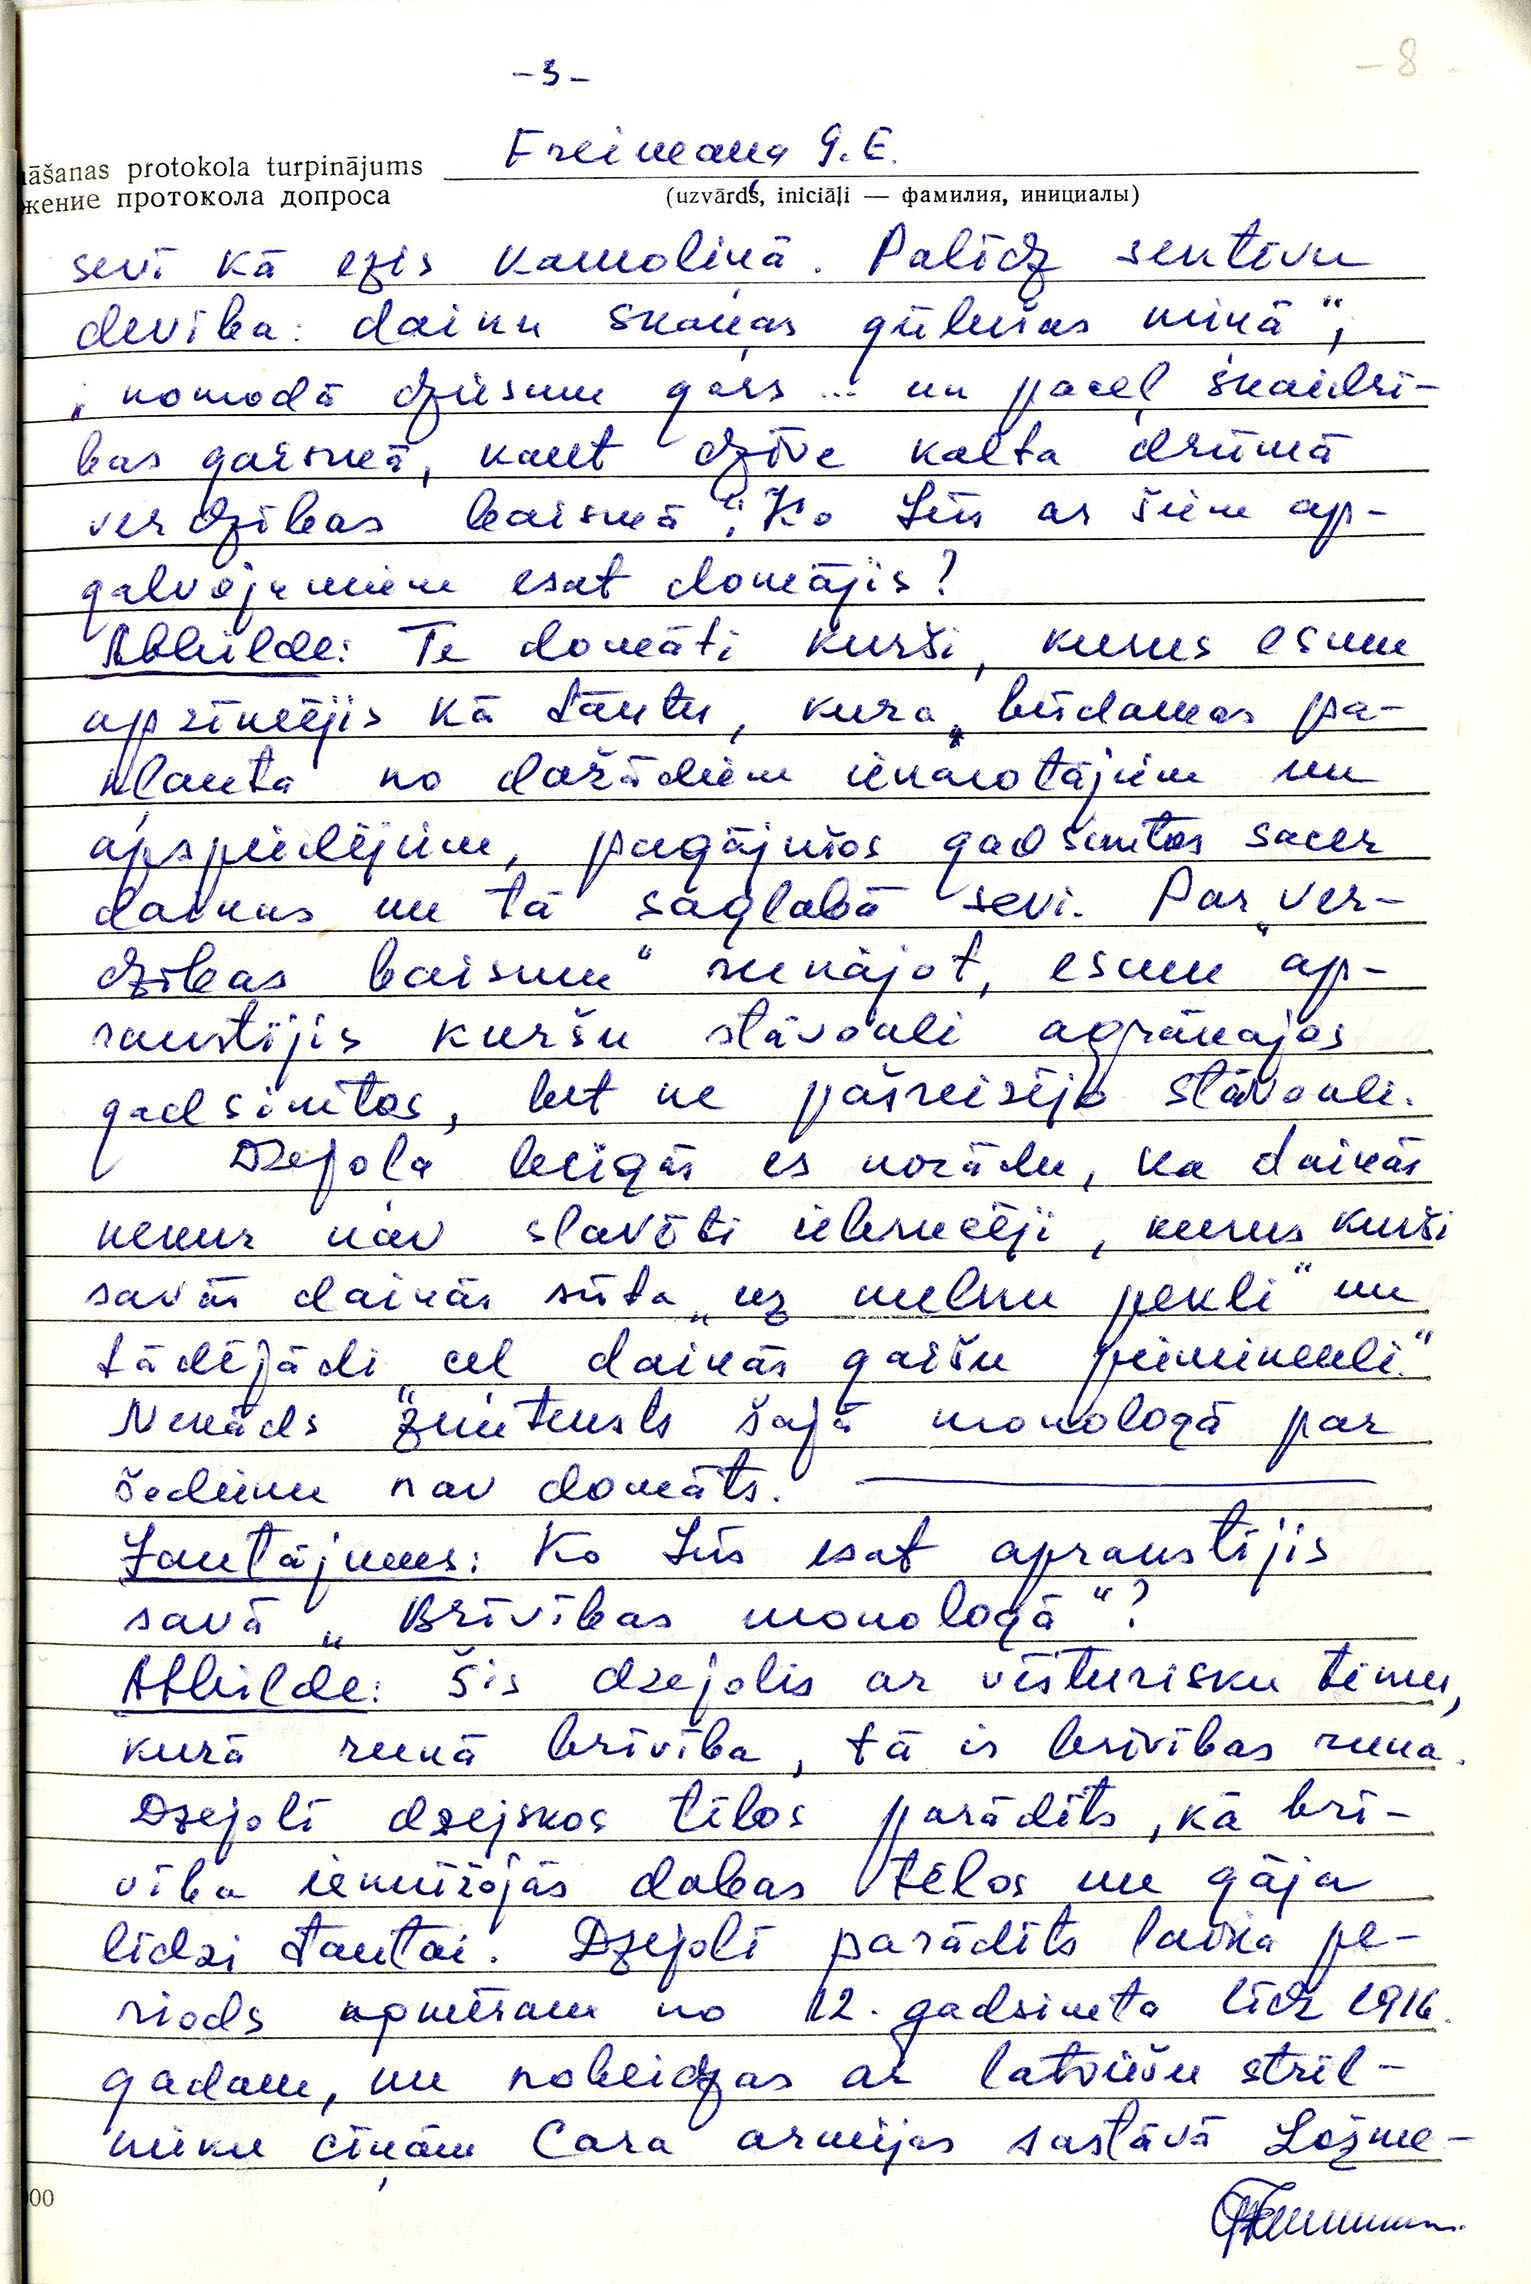 -3-
-8-
Freimaņa G. E.
nāšanas protokola turpinājums
жение протокола допроса
(uzvārds, iniciāļi — фамилия, инициалы)
sevī kā ezis kamolinā. Palīdz sentēvu
devība: dainu skaņas gūlušas miņā",
„nomodā dziesmu gars... un paceļ skaidrī-
bas gaismā, kaut dzīve kalta drūmā
verdzības baismā". Ko Jūs ar šiem ap-
galvojumiem esat domājis?
Atbilde: Te domāti kurši, kurus esmu
apzīmējis kā tautu, kura „būdamas pa-
kļauta no dažādiem iekarotājiem un
apspiedējiem, pagājušos gadsimtos sacer
dainas un tā saglabā sevi. Par „ver-
dzības baismu" runājot, esmu ap-
rakstījis kuršu stāvokli agrākajos
gadsimtos, bet ne pašreizējo stāvokli.
Dzejoļa beigās es norādu, ka dainās
nekur nav slavēti iebrucēji, kurus kurši
savās dainās sūta „uz melnu pekli" un
tādējādi „ceļ dainās gaišu pieminekli."
Nekāds zemteksts šajā monologā par
šodienu nav domāts.
Jautājums: Ko Jūs esat aprakstījis
savā „Brīvības monologā"?
Atbilde: Šis dzejolis ar vēsturisku tēmu,
kurā runā brīvība, tā ir brīvības runa.
Dzejolī dzejskos tēlos parādīts, kā brī-
vība iemūžojās dabas tēlos un gāja
līdzi tautai. Dzejolī parādīts laika pe-
riods apmēram no 12. gadsimta līdz 1916.
gadam, un nobeidzas ar latviešu strēl-
nieku cīņām Cara armijas sastāvā Ložme-
00